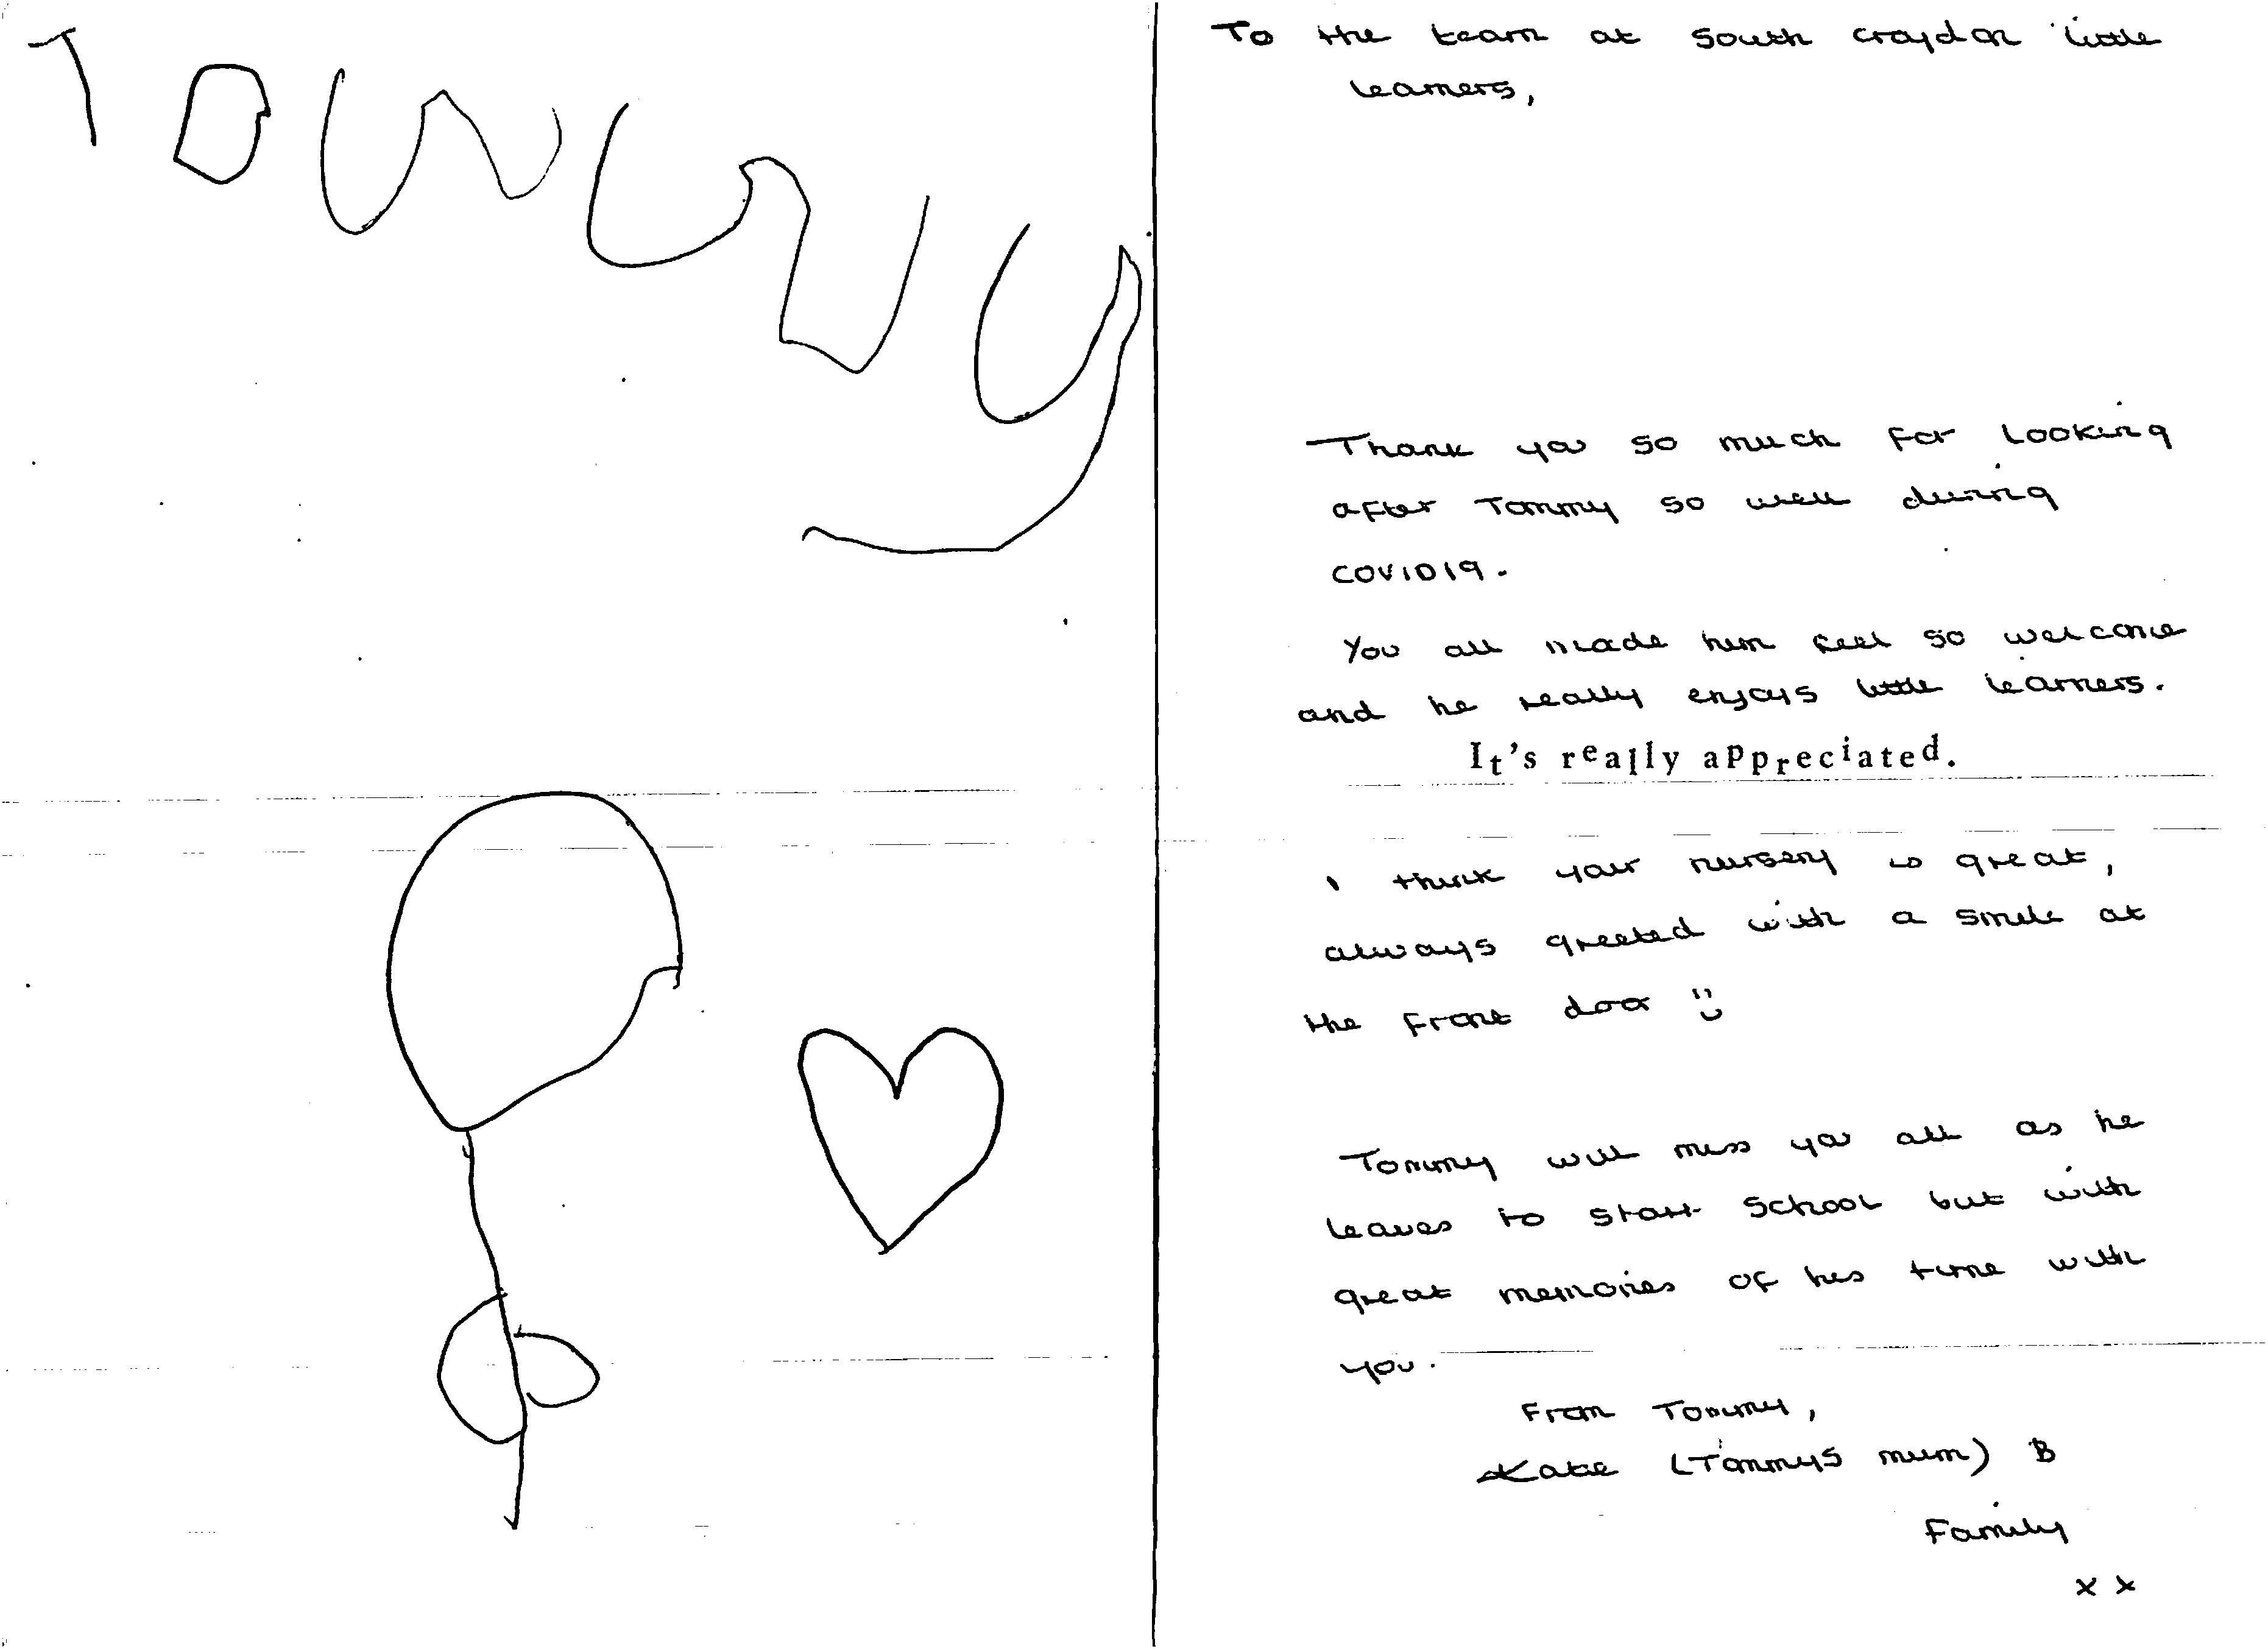 Tommy
To the team at South Croydon little
learners,
Thank you so much for looking
after Tommy so well during
COVID19.
You all made him feel so welcome
and he really enjoys little learners.
It's really appreciated.
I think your nursery is great,
always greeted with a smile at
the front door
Tommy will miss you all as he
leaves to start school but with
great memories of his time with
you.
From Tommy,
Katie (Tommys mum) &
Family
xx